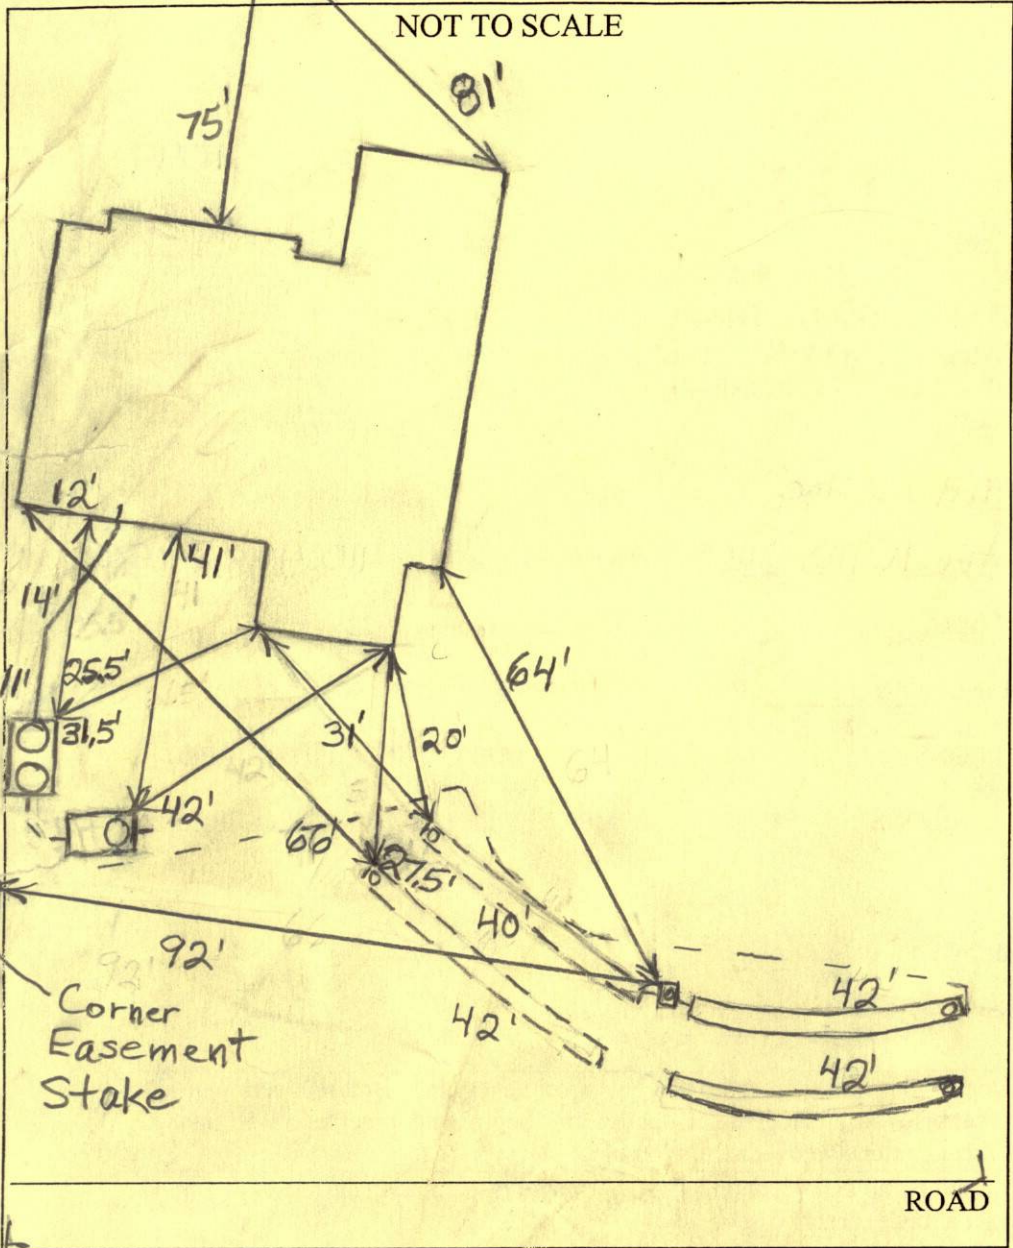 NOT TO SCALE
81'
75'
12'
41'
14'
11'
25.5'
31.5'
64'
31'
20'
42'
66'
27.5'
40'
92'
42'
42'
42'
Corner
Easement
Stake
ROAD